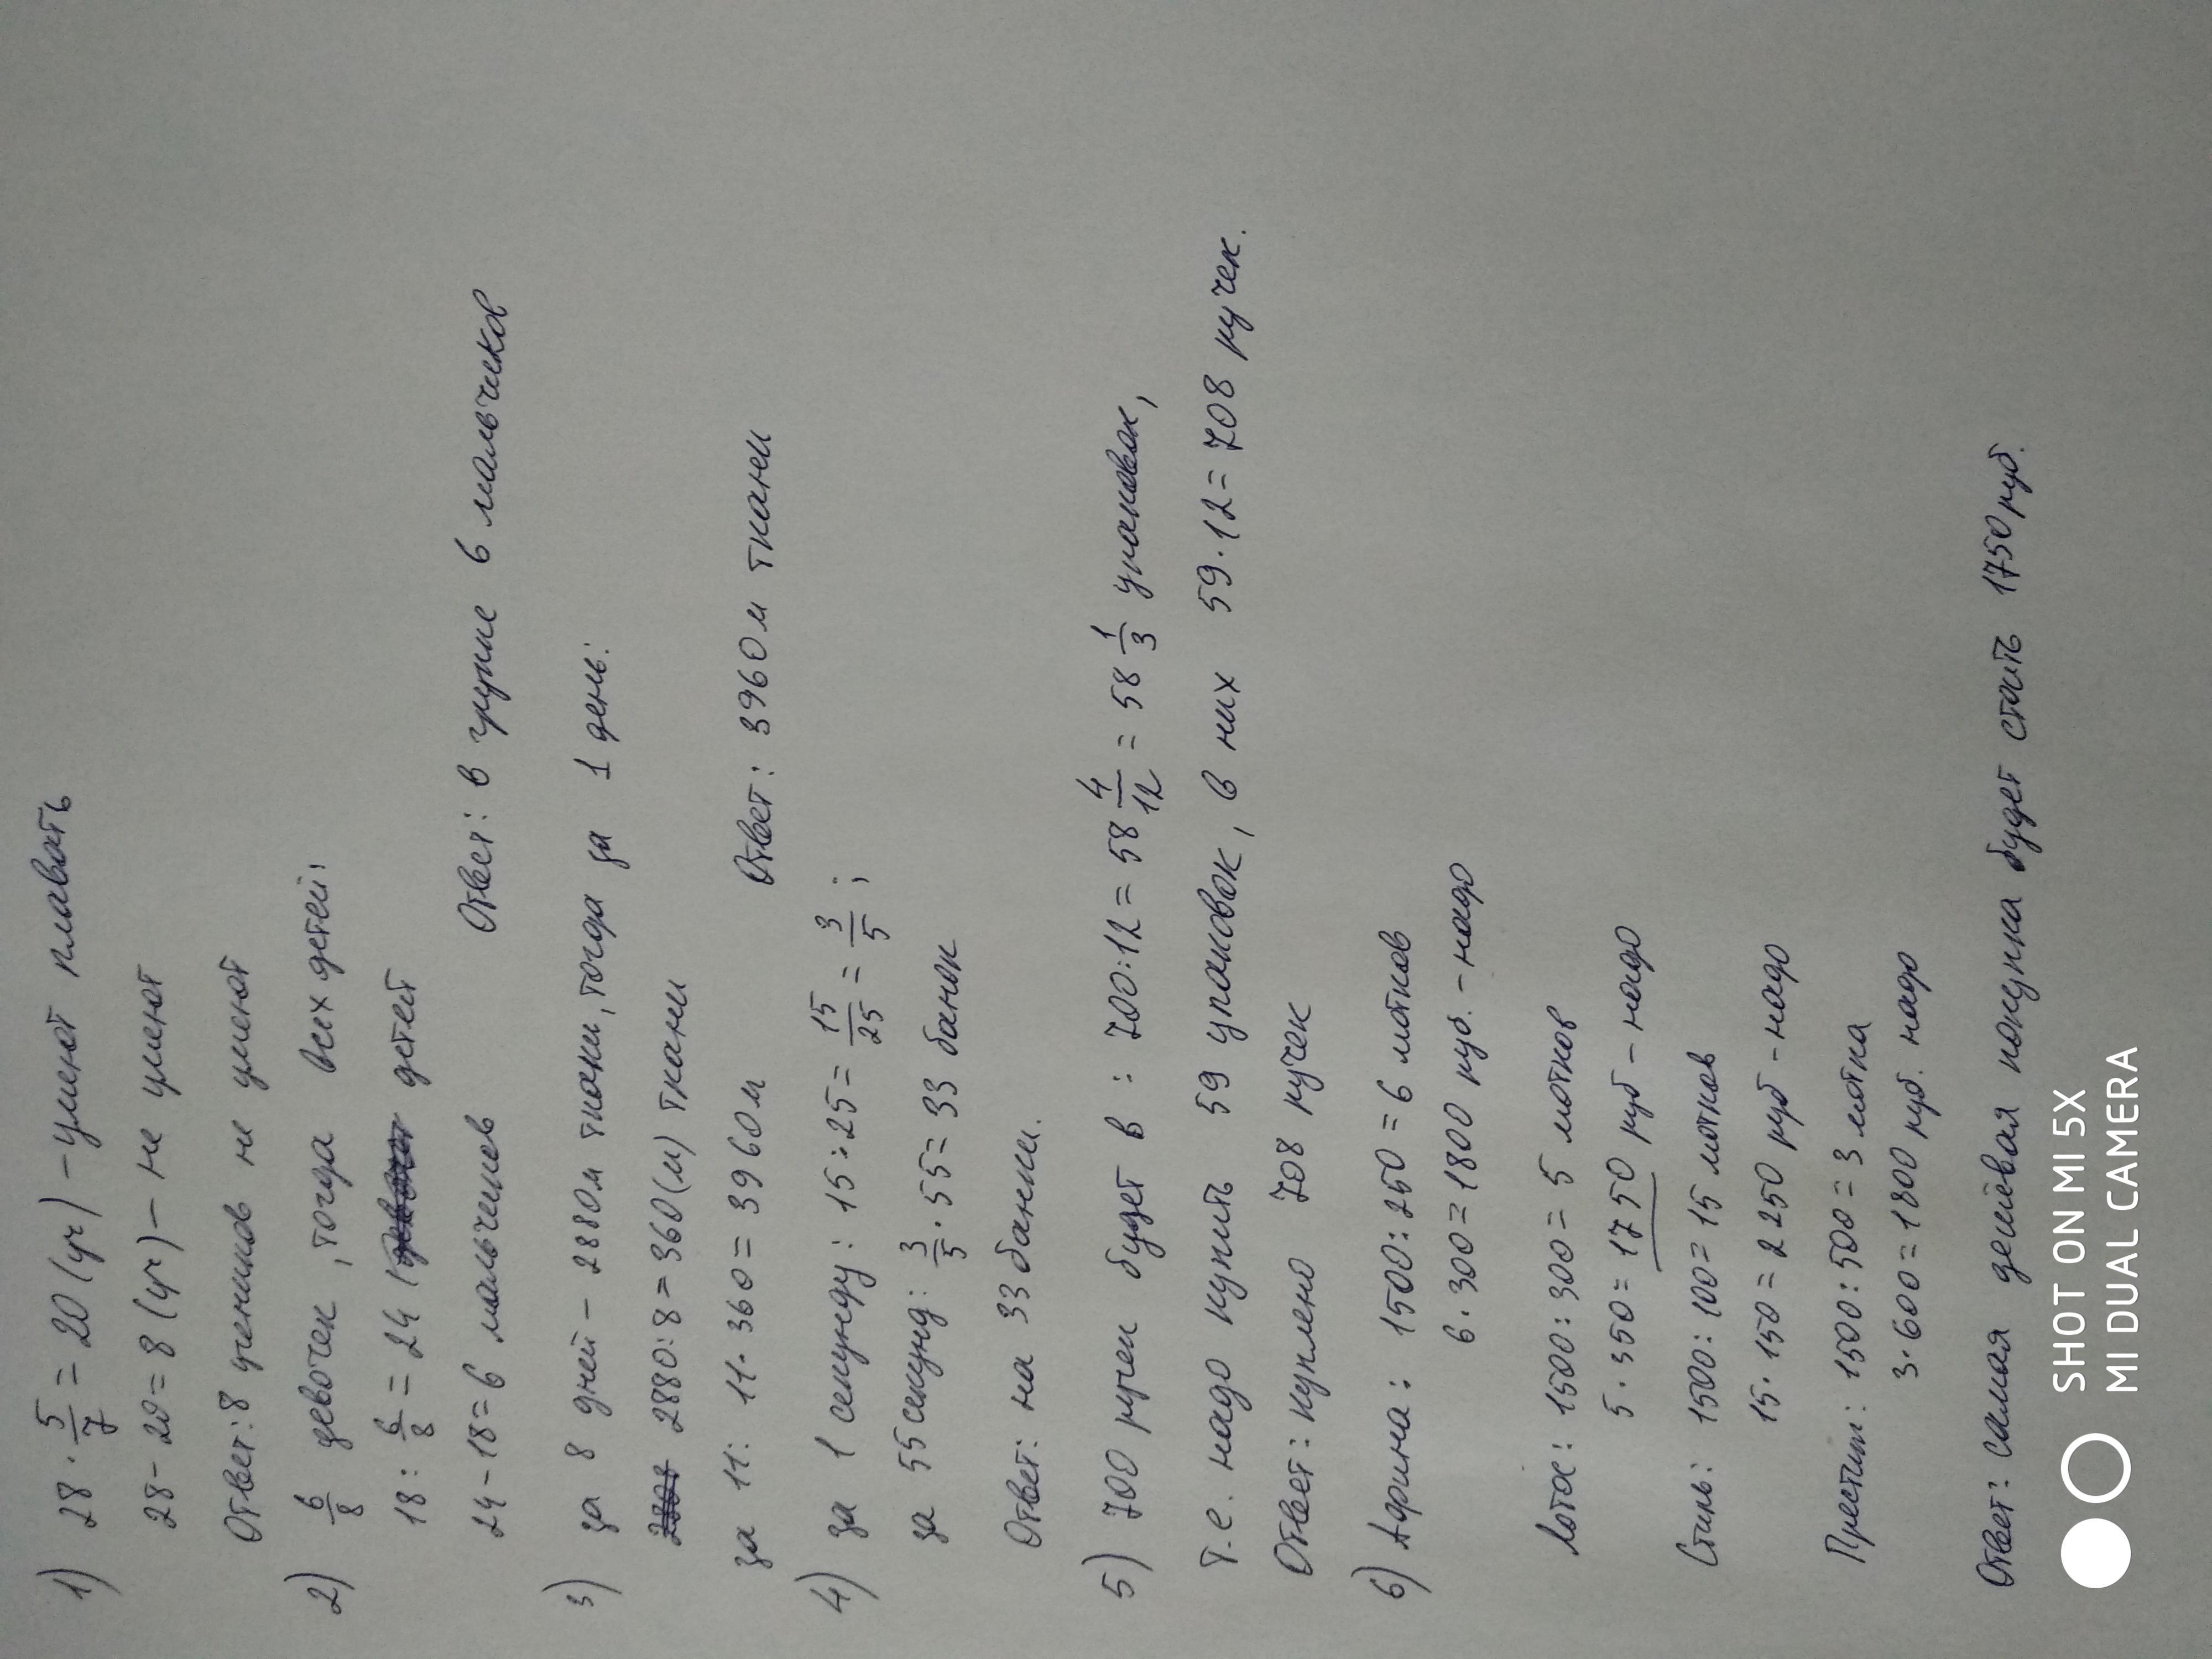 1) 28 · 5/7 = 20 (уч) – умеют плавать
28 - 20 = 8 (уч) – не умеют
Ответ: 8 учеников не умеют
2) 6/8 девочек, тогда всех детей:
18 : 6/8 = 24 детей
24 - 18 = 6 мальчиков
Ответ: в группе 6 мальчиков
3) за 8 дней – 2880 м ткани, тогда за 1 день:
2880 : 8 = 360 (м) ткани
за 11: 11 · 360 = 3960 м
Ответ: 3960 м ткани
4) за 1 секунду: 15 : 25 = 15/25 = 3/5;
за 55 секунд: 3/5 · 55 = 33 банок
Ответ: на 33 банки.
5) 700 ручек будет в: 700:12 = 58 4/12 = 58 1/3 упаковок,
т.е. надо купить 59 упаковок, в них 59·12 = 708 ручек.
Ответ: куплено 708 ручек
6) Адрина: 1500:250 = 6 мотков
6·300 = 1800 руб. – надо
Лотос: 1500:300 = 5 мотков
5·350 = 1750 руб – надо
Стиль: 1500:100 = 15 мотков
15·150 = 2250 руб – надо
Престиж: 1500:500 = 3 мотка
3·600 = 1800 руб. надо
Ответ: самая дешёвая покупка будет стоить 1750 руб.
SHOT ON MI 5X
MI DUAL CAMERA